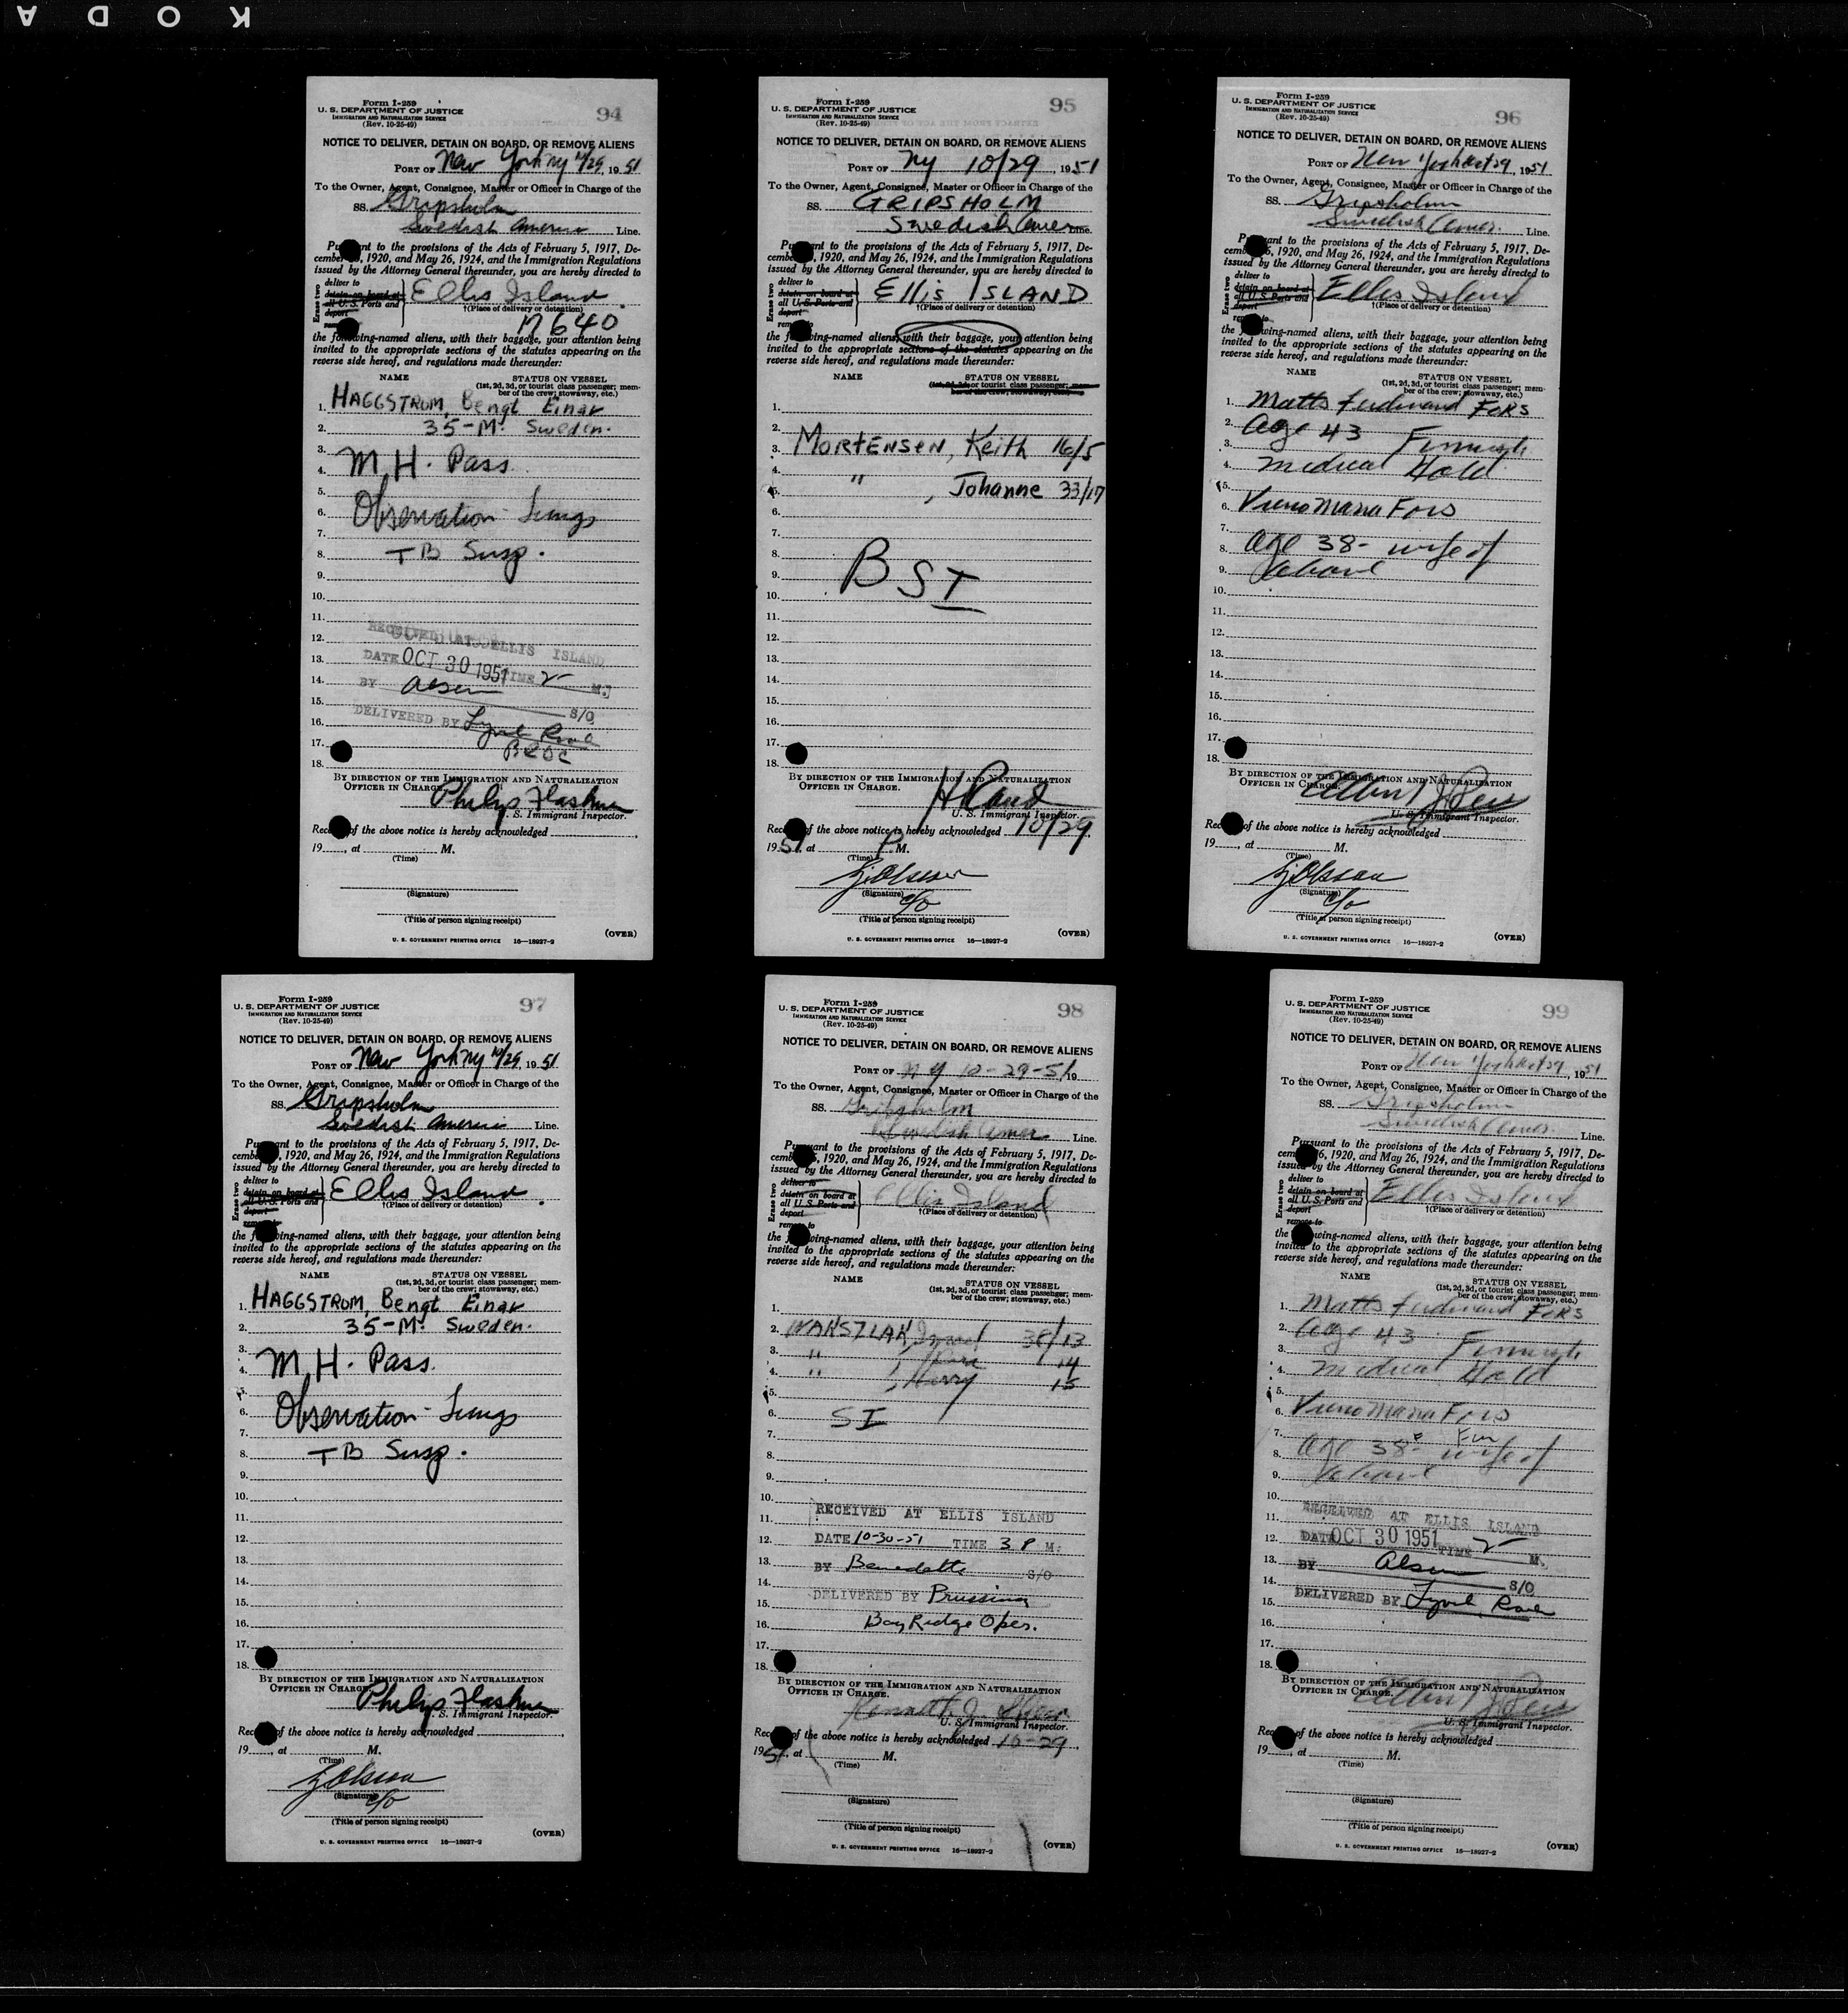 KODA
Form I-259
94
U. S. DEPARTMENT OF JUSTICE
IMMIGRATION AND NATURALIZATION SERVICE
(Rev. 10-25-49)
NOTICE TO DELIVER, DETAIN ON BOARD, OR REMOVE ALIENS
PORT OF New York NY 10/29, 1951
To the Owner, Agent, Consignee, Master or Officer in Charge of the
SS. Gripsholm
Swedish America Line.
Pursuant to the provisions of the Acts of February 5, 1917, De-
cember 26, 1920, and May 26, 1924, and the Immigration Regulations
issued by the Attorney General thereunder, you are hereby directed to
Erase two
deliver to
detain on board at
all U.S. Ports and
deport
remove to
Ellis Island.
†(Place of delivery or detention)
17640
the following-named aliens, with their baggage, your attention being
invited to the appropriate sections of the statutes appearing on the
reverse side hereof, and regulations made thereunder:
NAME STATUS ON VESSEL
(1st, 2d, 3d, or tourist class passenger; mem-
ber of the crew; stowaway, etc.)
1. HAGGSTROM, Bengt Einar
2. 35-M. Sweden.
3.
4. M.H. Pass.
5.
6. Observation - Lungs
7.
8. TB Susp.
9.
10.
11.
12. RECEIVED AT ELLIS ISLAND
13. DATE OCT 30 1951 TIME 2 M.
14. BY Olsen
15. S/O
16. DELIVERED BY
17.
18.
BY DIRECTION OF THE IMMIGRATION AND NATURALIZATION
OFFICER IN CHARGE.
Philip
U. S. Immigrant Inspector.
Receipt of the above notice is hereby acknowledged
19, at M.
(Time)
(Signature)
(Title of person signing receipt)
(OVER)
U. S. GOVERNMENT PRINTING OFFICE 16—18927-2
Form I-259
95
U. S. DEPARTMENT OF JUSTICE
IMMIGRATION AND NATURALIZATION SERVICE
(Rev. 10-25-49)
NOTICE TO DELIVER, DETAIN ON BOARD, OR REMOVE ALIENS
PORT OF NY 10/29, 1951
To the Owner, Agent, Consignee, Master or Officer in Charge of the
SS. GRIPSHOLM
Swedish Amer Line.
Pursuant to the provisions of the Acts of February 5, 1917, De-
cember 26, 1920, and May 26, 1924, and the Immigration Regulations
issued by the Attorney General thereunder, you are hereby directed to
Erase two
deliver to
detain on board at
all U.S. Ports and
deport
remove to
Ellis ISLAND
†(Place of delivery or detention)
the following-named aliens, with their baggage, your attention being
invited to the appropriate sections of the statutes appearing on the
reverse side hereof, and regulations made thereunder:
NAME STATUS ON VESSEL
(1st, 2d, 3d, or tourist class passenger; mem-
ber of the crew; stowaway, etc.)
1.
2.
3. MORTENSEN, Keith 16/5
4.
5. " , Johanne 33/17
6.
7.
8.
9. BSI
10.
11.
12.
13.
14.
15.
16.
17.
18.
BY DIRECTION OF THE IMMIGRATION AND NATURALIZATION
OFFICER IN CHARGE.
U. S. Immigrant Inspector.
Receipt of the above notice is hereby acknowledged 10/29,
1951, at P.M.
(Time)
(Signature)
c/o
(Title of person signing receipt)
(OVER)
U. S. GOVERNMENT PRINTING OFFICE 16—18927-2
Form I-259
96
U. S. DEPARTMENT OF JUSTICE
IMMIGRATION AND NATURALIZATION SERVICE
(Rev. 10-25-49)
NOTICE TO DELIVER, DETAIN ON BOARD, OR REMOVE ALIENS
PORT OF New York Oct 29, 1951
To the Owner, Agent, Consignee, Master or Officer in Charge of the
SS. Gripsholm
Swedish Amer. Line.
Pursuant to the provisions of the Acts of February 5, 1917, De-
cember 26, 1920, and May 26, 1924, and the Immigration Regulations
issued by the Attorney General thereunder, you are hereby directed to
Erase two
deliver to
detain on board at
all U.S. Ports and
deport
remove to
Ellis Island
†(Place of delivery or detention)
the following-named aliens, with their baggage, your attention being
invited to the appropriate sections of the statutes appearing on the
reverse side hereof, and regulations made thereunder:
NAME STATUS ON VESSEL
(1st, 2d, 3d, or tourist class passenger; mem-
ber of the crew; stowaway, etc.)
1. Matts Ferdinand FORS
2. Age 43 Finnish
3.
4. Medical Hold
5.
6. Maria Fors
7.
8. age 38 - wife of
9. above
10.
11.
12.
13.
14.
15.
16.
17.
18.
BY DIRECTION OF THE IMMIGRATION AND NATURALIZATION
OFFICER IN CHARGE.
U. S. Immigrant Inspector.
Receipt of the above notice is hereby acknowledged
19, at M.
(Time)
(Signature)
c/o
(Title of person signing receipt)
(OVER)
U. S. GOVERNMENT PRINTING OFFICE 16—18927-2
Form I-259
97
U. S. DEPARTMENT OF JUSTICE
IMMIGRATION AND NATURALIZATION SERVICE
(Rev. 10-25-49)
NOTICE TO DELIVER, DETAIN ON BOARD, OR REMOVE ALIENS
PORT OF New York NY 10/29, 1951
To the Owner, Agent, Consignee, Master or Officer in Charge of the
SS. Gripsholm
Swedish America Line.
Pursuant to the provisions of the Acts of February 5, 1917, De-
cember 26, 1920, and May 26, 1924, and the Immigration Regulations
issued by the Attorney General thereunder, you are hereby directed to
Erase two
deliver to
detain on board at
all U.S. Ports and
deport
remove to
Ellis Island.
†(Place of delivery or detention)
the following-named aliens, with their baggage, your attention being
invited to the appropriate sections of the statutes appearing on the
reverse side hereof, and regulations made thereunder:
NAME STATUS ON VESSEL
(1st, 2d, 3d, or tourist class passenger; mem-
ber of the crew; stowaway, etc.)
1. HAGGSTROM, Bengt Einar
2. 35-M. Sweden.
3.
4. M.H. Pass.
5.
6. Observation - Lungs
7.
8. TB Susp.
9.
10.
11.
12.
13.
14.
15.
16.
17.
18.
BY DIRECTION OF THE IMMIGRATION AND NATURALIZATION
OFFICER IN CHARGE.
Philip
U. S. Immigrant Inspector.
Receipt of the above notice is hereby acknowledged
19, at M.
(Time)
(Signature)
c/o
(Title of person signing receipt)
(OVER)
U. S. GOVERNMENT PRINTING OFFICE 16—18927-2
Form I-259
98
U. S. DEPARTMENT OF JUSTICE
IMMIGRATION AND NATURALIZATION SERVICE
(Rev. 10-25-49)
NOTICE TO DELIVER, DETAIN ON BOARD, OR REMOVE ALIENS
PORT OF NY 10-29-51 19
To the Owner, Agent, Consignee, Master or Officer in Charge of the
SS. Gripsholm
Swedish Amer Line.
Pursuant to the provisions of the Acts of February 5, 1917, De-
cember 26, 1920, and May 26, 1924, and the Immigration Regulations
issued by the Attorney General thereunder, you are hereby directed to
Erase two
deliver to
detain on board at
all U.S. Ports and
deport
remove to
Ellis Island
†(Place of delivery or detention)
the following-named aliens, with their baggage, your attention being
invited to the appropriate sections of the statutes appearing on the
reverse side hereof, and regulations made thereunder:
NAME STATUS ON VESSEL
(1st, 2d, 3d, or tourist class passenger; mem-
ber of the crew; stowaway, etc.)
1.
2. 38/13
3. " 14
4. " , Harry 15
5.
6. SI
7.
8.
9.
10.
11. RECEIVED AT ELLIS ISLAND
12. DATE 10-30-51 TIME 3 P M.
13. BY Benedetto S/O
14. DELIVERED BY
15.
16. Bay Ridge Oper.
17.
18.
BY DIRECTION OF THE IMMIGRATION AND NATURALIZATION
OFFICER IN CHARGE.
Kenneth J.
U. S. Immigrant Inspector.
Receipt of the above notice is hereby acknowledged 10-29,
1951, at M.
(Time)
(Signature)
(Title of person signing receipt)
(OVER)
U. S. GOVERNMENT PRINTING OFFICE 16—18927-2
Form I-259
99
U. S. DEPARTMENT OF JUSTICE
IMMIGRATION AND NATURALIZATION SERVICE
(Rev. 10-25-49)
NOTICE TO DELIVER, DETAIN ON BOARD, OR REMOVE ALIENS
PORT OF New York Oct 29, 1951
To the Owner, Agent, Consignee, Master or Officer in Charge of the
SS. Gripsholm
Swedish Amer. Line.
Pursuant to the provisions of the Acts of February 5, 1917, De-
cember 26, 1920, and May 26, 1924, and the Immigration Regulations
issued by the Attorney General thereunder, you are hereby directed to
Erase two
deliver to
detain on board at
all U.S. Ports and
deport
remove to
Ellis Island
†(Place of delivery or detention)
the following-named aliens, with their baggage, your attention being
invited to the appropriate sections of the statutes appearing on the
reverse side hereof, and regulations made thereunder:
NAME STATUS ON VESSEL
(1st, 2d, 3d, or tourist class passenger; mem-
ber of the crew; stowaway, etc.)
1. Matts Ferdinand FORS
2. Age 43 Finnish
3.
4. Medical Hold
5.
6. Maria Fors
7. Fin
8. age 38 - wife of
9. above
10.
11. RECEIVED AT ELLIS ISLAND
12. DATE OCT 30 1951 TIME 2 M.
13. BY Olsen
14. S/O
15. DELIVERED BY
16.
17.
18.
BY DIRECTION OF THE IMMIGRATION AND NATURALIZATION
OFFICER IN CHARGE.
U. S. Immigrant Inspector.
Receipt of the above notice is hereby acknowledged
19, at M.
(Time)
(Signature)
(Title of person signing receipt)
(OVER)
U. S. GOVERNMENT PRINTING OFFICE 16—18927-2